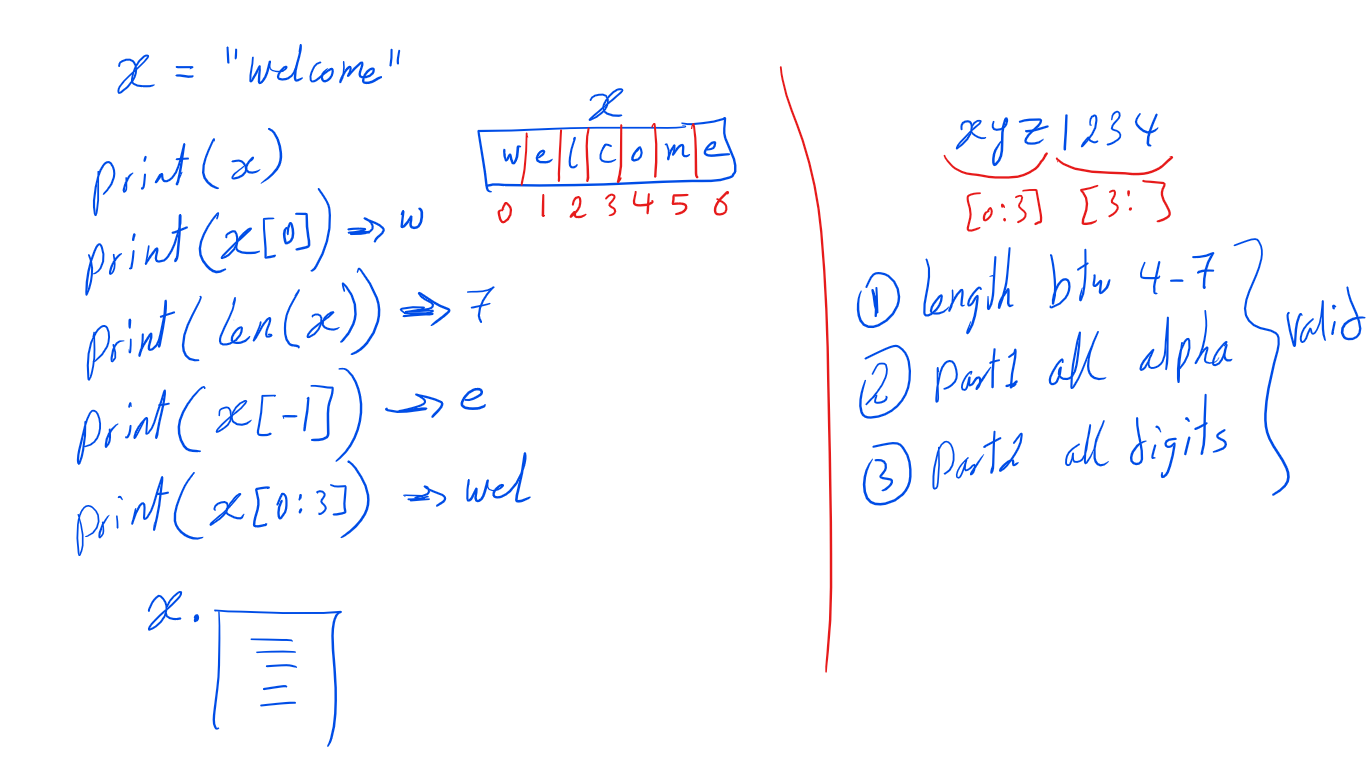 x = "welcome"
print(x)
print(x[0]) → w
print(len(x)) → 7
print(x[-1]) → e
print(x[0:3]) → wel
x.
x
w e l c o m e
0 1 2 3 4 5 6
xyz1234
[0:3] [3: ]
① length btw 4-7
② part1 all alpha
③ part2 all digits
valid